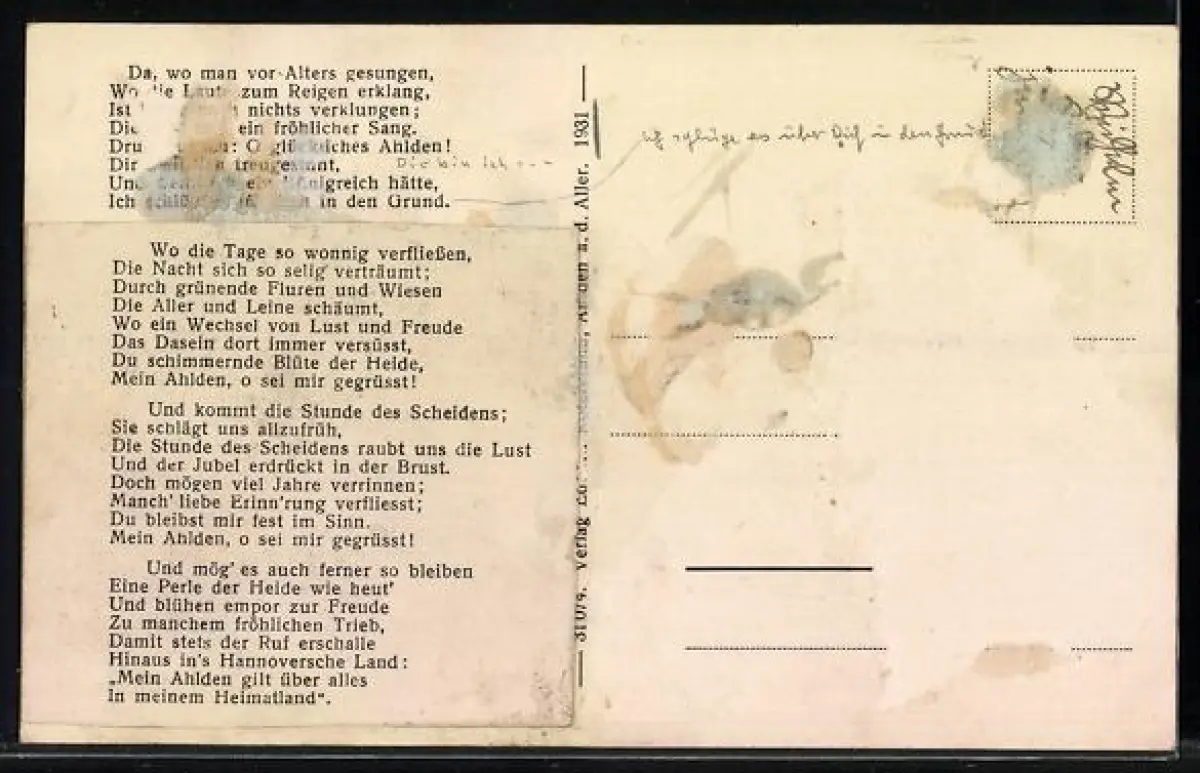 Da, wo man vor Alters gesungen,
Wo die Laute zum Reigen erklang,
Ist nichts verklungen;
ein fröhlicher Sang.
O glückliches Ahlden!
Dir treugesinnt,
Und Königreich hätte,
Ich in den Grund.
Dir bin ich
Wo die Tage so wonnig verfließen,
Die Nacht sich so selig verträumt;
Durch grünende Fluren und Wiesen
Die Aller und Leine schäumt,
Wo ein Wechsel von Lust und Freude
Das Dasein dort immer versüsst,
Du schimmernde Blüte der Heide,
Mein Ahlden, o sei mir gegrüsst!
Und kommt die Stunde des Scheidens;
Sie schlägt uns allzufrüh,
Die Stunde des Scheidens raubt uns die Lust
Und der Jubel erdrückt in der Brust.
Doch mögen viel Jahre verrinnen;
Manch' liebe Erinn'rung verfliesst;
Du bleibst mir fest im Sinn.
Mein Ahlden, o sei mir gegrüsst!
Und mög' es auch ferner so bleiben
Eine Perle der Heide wie heut'
Und blühen empor zur Freude
Zu manchem fröhlichen Trieb,
Damit stets der Ruf erschalle
Hinaus in's Hannoversche Land:
„Mein Ahlden gilt über alles
In meinem Heimatland".
Verlag a. d. Aller. 1931
Ich schlüge es über Dich in den Grund